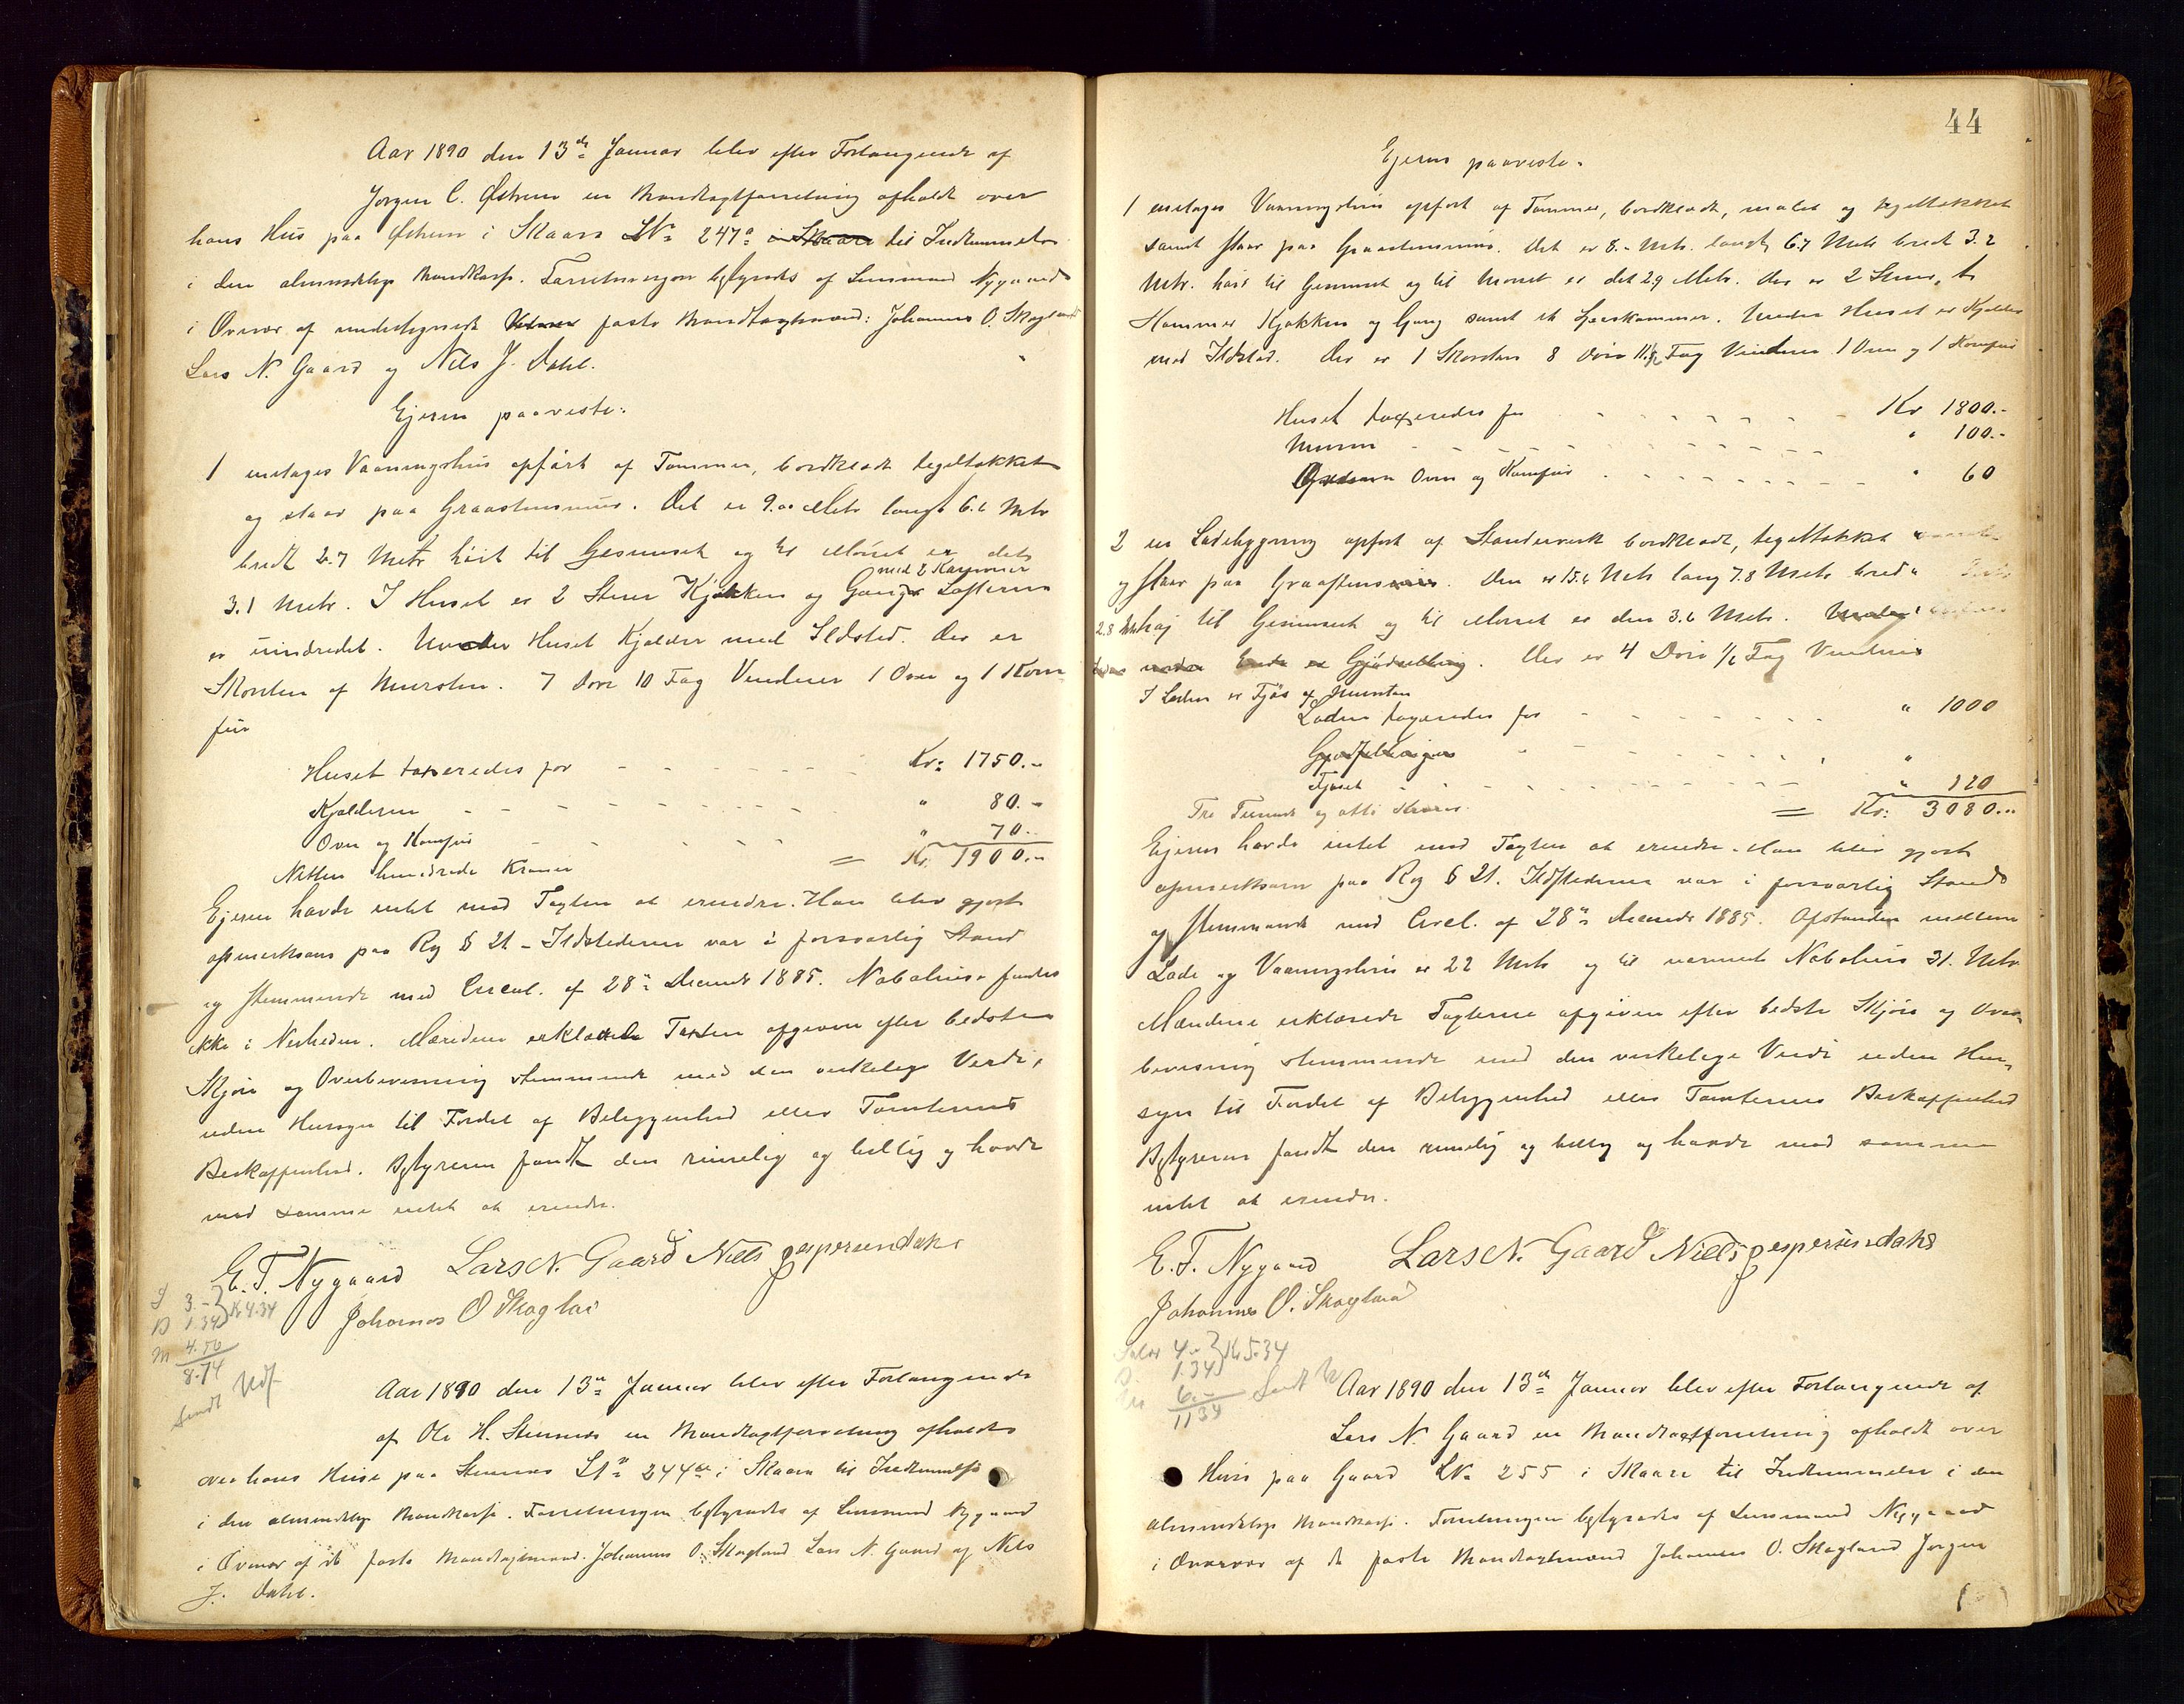 Aar 1890 den 13de Januar blev efter Forlangende af
Jørgen C. Østrem en Brandtagtforretning afholdt over
hans Hus paa Østrem i Skaare LNo 247a i Skaare til Indlemmelse
i den almindelige Brandkasse. Forretningen bestyredes af Lensmand Nygaard
i Overvær af undertegnede faste Brandtagtmænd: Johannes O. Skogland
Lars N. Gaard og Nils J. Dahl.
Ejeren paaviste:
1 enetages Vaaningshus opført af Tømmer, bordklædt tegeltækket
og staar paa Graastensmur. Det er 9.00 Metr langt 6.6 Metr
bredt 2.7 Metr høit til Gesimset og til Mønet er det
med 2 Kammer
3.1 Metr. I Huset er 2 Stuer Kjøkken og Gang. Lofterne
er uindredet. Under Huset Kjelder med Ildsted. Der er
Skorsten af Mursten. 7 Døre 10 Fag Vinduer 1 Oven og 1 Kom
fur
Huset taxeredes for Kr: 1750.-
Kjelderen " 80.-
Oven og Komfur " 70.-
Nitten hundrede Kroner = Kr. 1900.-
Ejeren havde intet mod Taxten at erindre. Han blev gjort
opmerksom paa Rg § 21 - Ildstederne var i forsvarlig Stand
og stemmende med Circul. af 28de Decembr 1885. Nabohuse findes
ikke i Nerheden. Mændene erklærede Taxten afgiven efter bedste
Skjøn og Overbevisning stemmende med den virkelige Verdi,
uden Hensyn til Fordel af Beliggenhed eller Tomternes
Beskaffenhed. Bestyreren fandt den rimelig og billig og havde
mod samme intet at erindre.
E. T. Nygaard Lars N. Gaard Niels Jespersen Dahl
Johannes O Skoglan
S 3 -
D 1.34 Kr 4.34
M 4.50
8.74
Sendt Udf
Aar 1890 den 13de Januar blev efter Forlangende
af Ole H. Stemnes en Brandtagtforretning afholdt
over hans Huse paa Stemnes LNo 244 i Skaare til Indlemmelse
i den almindelige Brandkasse. Forretningen bestyredes af Lensmand Nygaard
i Overvær af de faste Brandtagtmænd. Johannes O. Skogland Lars N. Gaard og Nils
J. Dahl.
44
Ejeren paaviste.
1 enetages Vaaningshus opført af Tømmer, bordklædt, malet og tegeltækket
samt staar paa Graastensmur. Det er 8.- Metr. langt, 6.7 Metr bredt 3.2
Metr. høit til Gesimset og til Mønet er det 2.9 Metr. Der er 2 Stuer, to
Kammer Kjøkken og Gang samt et Speiskammer. Under Huset er Kjelder
med Ildsted. Der er 1 Skorsten 8 Døre 11 1/2 Fag Vinduer 1 Oven og 1 Komfur
Huset taxeredes for Kr 1800.-
Muren " 100.-
Oven og Komfur " 60
2 en Ladebygning opført af Standerverk bordklædt, tegeltækket
og staar paa Graastensmur. Den er 15.6 Metr lang 7.8 Metr bred
2.8 Metr høj til Gesimset og til Mønet er den 3.6 Metr. Under
under er Gjødselbing. Der er 4 Døre 1/2 Fag Vinduer
I Laden er Fjøs af Mursten
Laden taxeredes for " 1000
Gjødselbingen "
Fjøset " 120
Tre Tusende og otti Kroner = Kr: 3080.-
Ejeren havde intet mod Taxten at erindre. Han blev gjort
opmerksom paa Rg § 21. Ildstederne var i forsvarlig Stand
og stemmende med Circl. af 28de Decembr 1885. Afstanden mellem
Lade og Vaaningshus er 22 Metr og til nærmeste Nabohus 31. Metr
Mændene erklærede Taxterne afgiven efter bedste Skjøn og Over
bevisning stemmende med den virkelige Verdi uden Hen
syn til Fordel af Beliggenhed eller Tomternes Beskaffenhed
Bestyreren fandt den rimelig og billig og havde mod samme
intet at erindre.
E. T. Nygaard Lars N. Gaard Niels Jespersen Dahl
Johannes O. Skogland
4.- Kr 5.34
1.34
6.-
11 34
Sendt
Aar 1890 den 13de Januar blev efter Forlangende af
Lars N. Gaard en Brandtagtforretning afholdt over
Hus paa Gaard LNo 255 i Skaare til Indlemmelse i den
almindelige Brandkasse. Forretningen bestyredes af Lensmand Nygaard
i Overvær af de faste Brandtagtmænd Johannes O. Skogland Jørgen